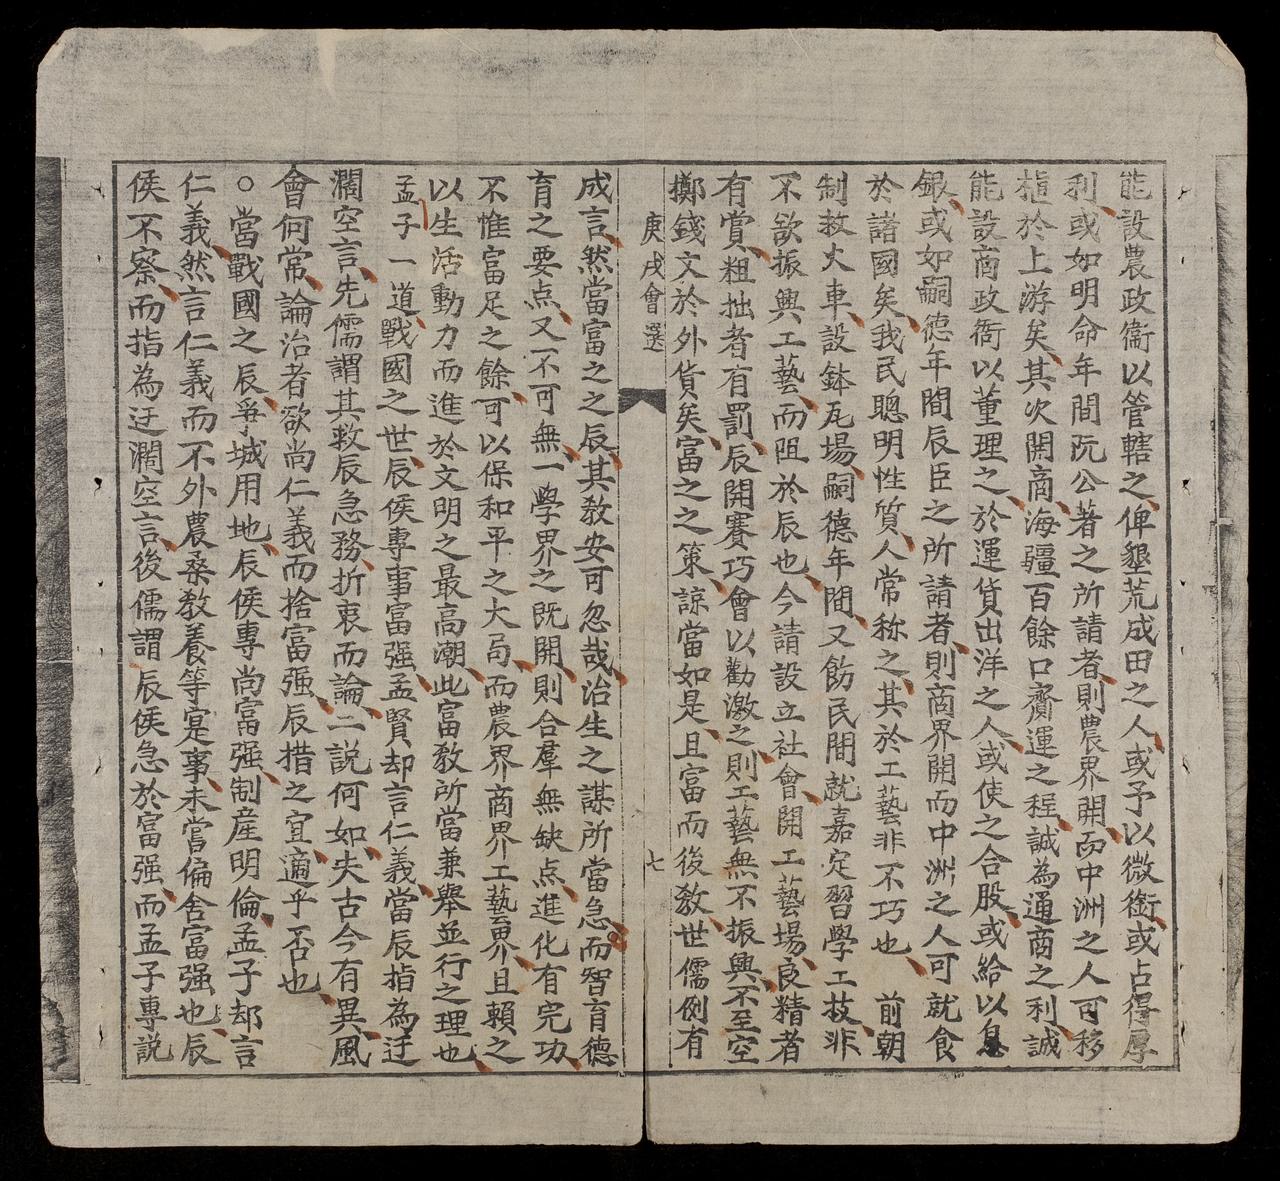 能設農政衙以管轄之俾墾荒成田之人或予以微銜或占得厚
利或如明命年間阮公著之所請者則農界開而中洲之人可移
植於上游矣其次開商海疆百餘口齎運之程誠為通商之利誠
能設商政衙以董理之於運貨出洋之人或使之合股或給以息
銀或如嗣德年間辰臣之所請者則商界開而中洲之人可就食
於諸國矣我民聰明性質人常称之其於工藝非不巧也 前朝
制救火車設鉢瓦場嗣德年間又飭民間就嘉定習學工技非
不欲振興工藝而阻於辰也今請設立社會開工藝場良精者
有賞粗拙者有罰辰開賽巧會以勸激之則工藝無不振興不至空
擲錢文於外貨矣富之之策諒當如是且富而後教世儒例有
庚戌會選
七
成言然當富之之辰其教安可忽哉治生之謀所當急而智育德
育之要点又不可無一學界之既開則合羣無缺点進化有完功
不惟富足之餘可以保和平之大局而農界商界工藝界且賴之
以生活動力而進於文明之最高潮此富教所當兼舉並行之理也
孟子一道戰國之世辰侯專事富强孟賢却言仁義當辰指為迂
濶空言先儒謂其救辰急務折衷而論二說何如夫古今有異風
會何常論治者欲尚仁義而捨富强辰措之宜適乎否也
○當戰國之辰爭城用地辰侯專尚富强制産明倫孟子却言
仁義然言仁義而不外農桑教養等寔事未嘗偏舍富强也辰
侯不察而指為迂濶空言後儒謂辰侯急於富强而孟子專說